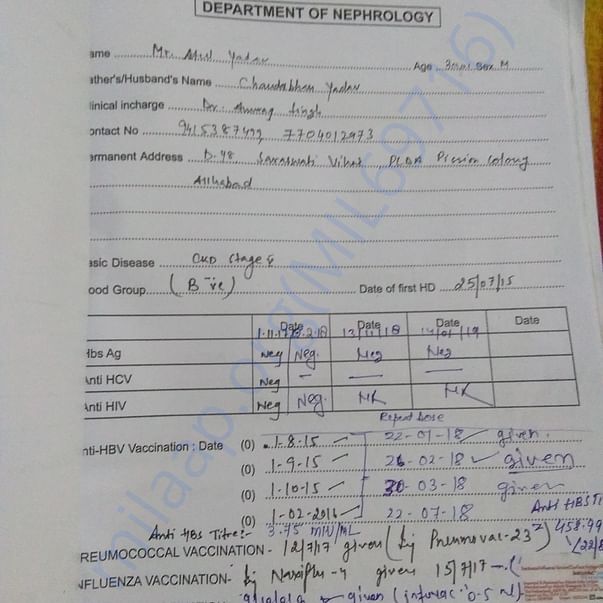 DEPARTMENT OF NEPHROLOGY
ame Mr. Atul Yadav Age Sex M
ather's/Husband's Name Chandrabhan Yadav
linical incharge Dr. Anurag Singh
ontact No 9415387492 7704012973
ermanent Address D-48 Saraswati Vihar, Colony
Allhabad
asic Disease CKD Stage 5
ood Group (B -ve) Date of first HD 25/07/15
Date Date Date Date
13/11/18
Hbs Ag Neg Neg. Neg Neg
Anti HCV Neg – — —
Anti HIV Neg Neg. NR NR
Repeat Dose
nti-HBV Vaccination : Date (0) 1-8-15 22-01-18 given.
(0) 1-9-15 26-02-18 given
(0) 1-10-15 30-03-18 given
(0) 1-02-2016 22-07-18 Anti HBS Ti
Anti HBs Titre:- 3.75 MIU/ML
REUMOCOCCAL VACCINATION - 12/7/17 given (Inj Pneumovac-23)
NFLUENZA VACCINATION- Inj given 15/7/17
given
milaap.org(MIL69716)